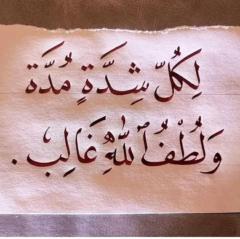 لِكُلِّ شِدَّةٍ مُدَّة
وَلُطْفُ ٱللهِ غَالِب.